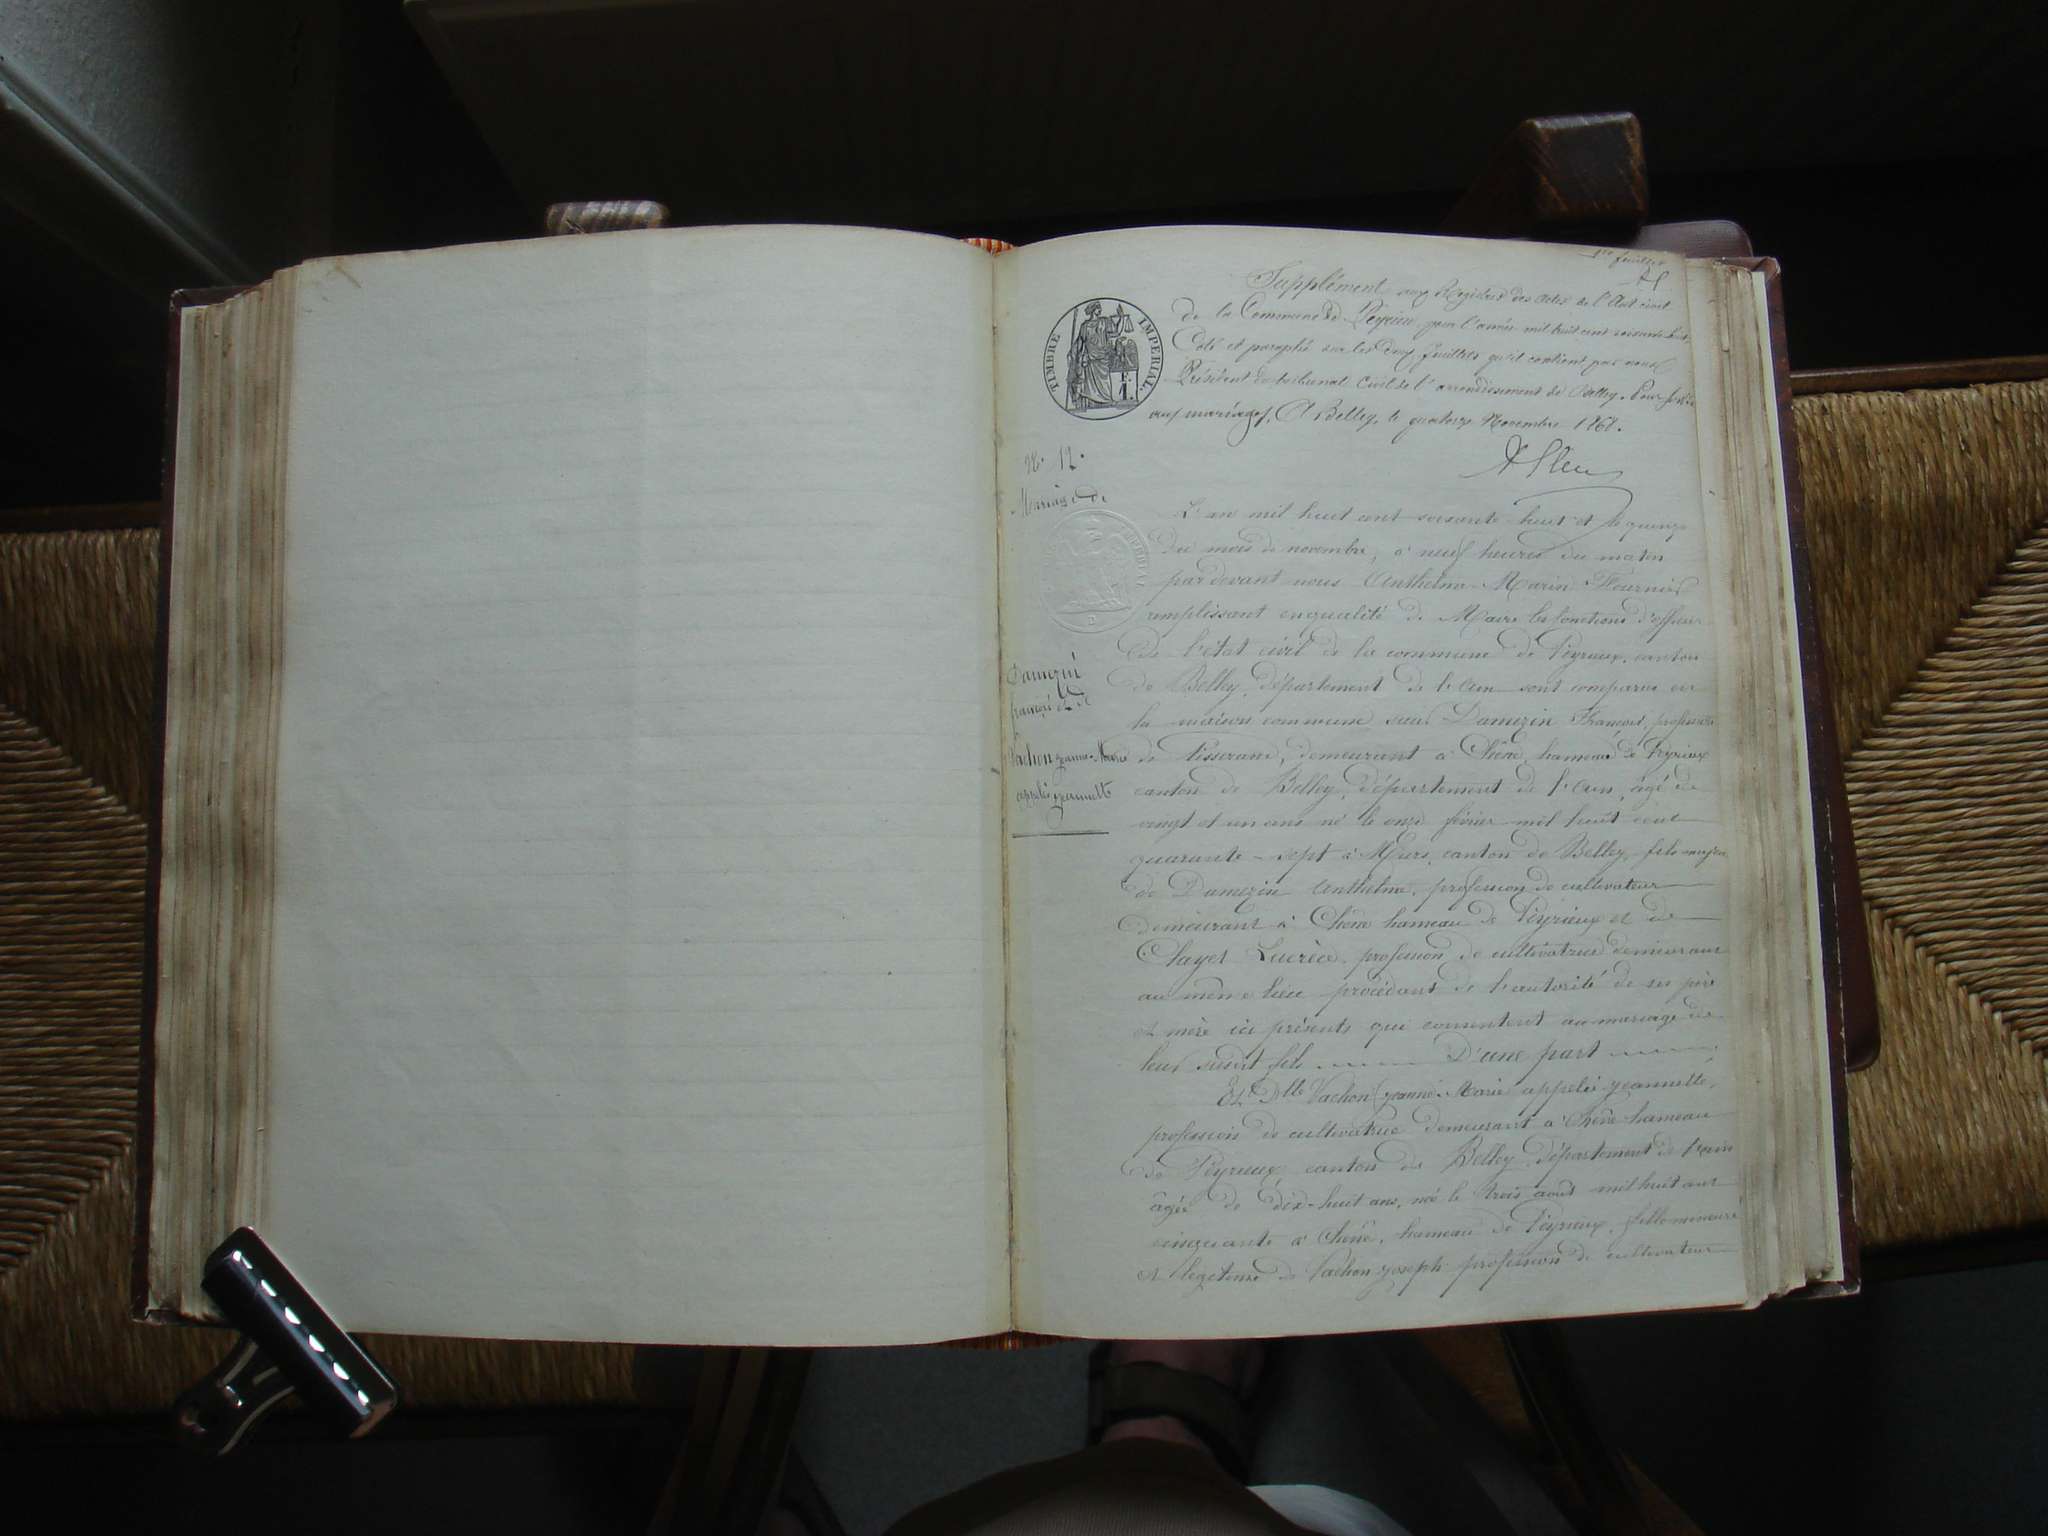 1er feuillet
Supplément aux Registres des actes de l'État civil
de la Commune de Peyrieu, pour l'année mil huit cent soixante huit
Coté et paraphé sur les deux feuillets qu'il contient par nous
Président du tribunal Civil de l'arrondissement de Belley. Pour servir
aux mariages. A Belley, le quatorze Novembre 1868.
TIMBRE IMPÉRIAL
F.
1.
N. 12.
Mariage de
Damezin
françois et de
Vachon jeanne-Marie
appelée jeannette
L'an mil huit cent soixante huit et le quinze
du mois de novembre, à neuf heures du matin
par devant nous Anthelme-Marin Fournier
remplissant en qualité de Maire les fonctions d'officier
de l'état civil de la commune de Peyrieux, canton
de Belley, département de l'ain sont comparus en
la maison commune sieur Damezin François, profession
de Tisserand, demeurant à Chêne, hameau de Peyrieux
canton de Belley, département de l'ain, âgé de
vingt et un ans né le onze février mil huit cent
quarante-sept à Murs, canton de Belley, fils majeur
de Damezin Anthelme, profession de cultivateur
demeurant à Chêne hameau de Peyrieux et de
Clayet Lucrèce, profession de cultivatrice demeurant
au même lieu procédant de l'autorité de ses père
et mère ici présents qui consentent au mariage de
leur susdit fils D'une part
Et Dlle Vachon jeanne-Marie appelée jeannette,
profession de cultivatrice demeurant à Chêne hameau
de Peyrieux canton de Belley, département de l'ain
âgée de dix-huit ans, née le trois août mil huit cent
cinquante à Chêne, hameau de Peyrieux, fille mineure
et légitime de Vachon joseph profession de cultivateur